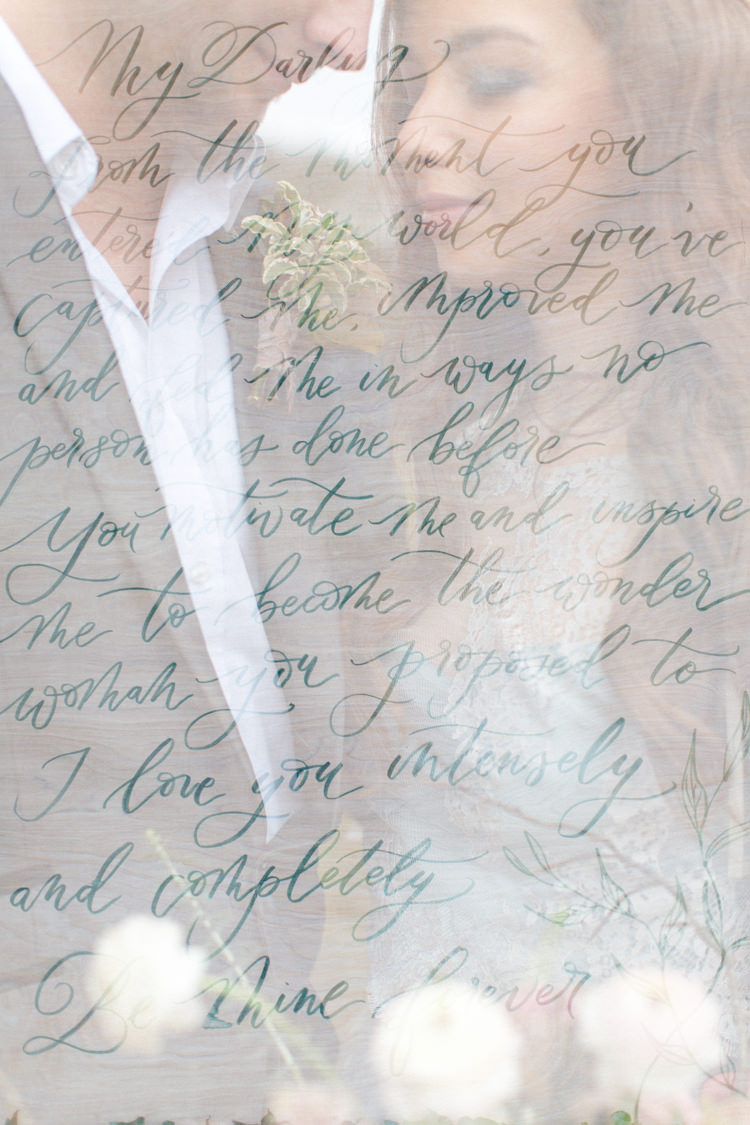 My Darling
from the moment you
entered my world, you've
captured me. improved me
and me in ways no
person has done before
You motivate me and inspire
me to become the wonder
woman you proposed to
I love you intensely
and completely
Be Mine forever